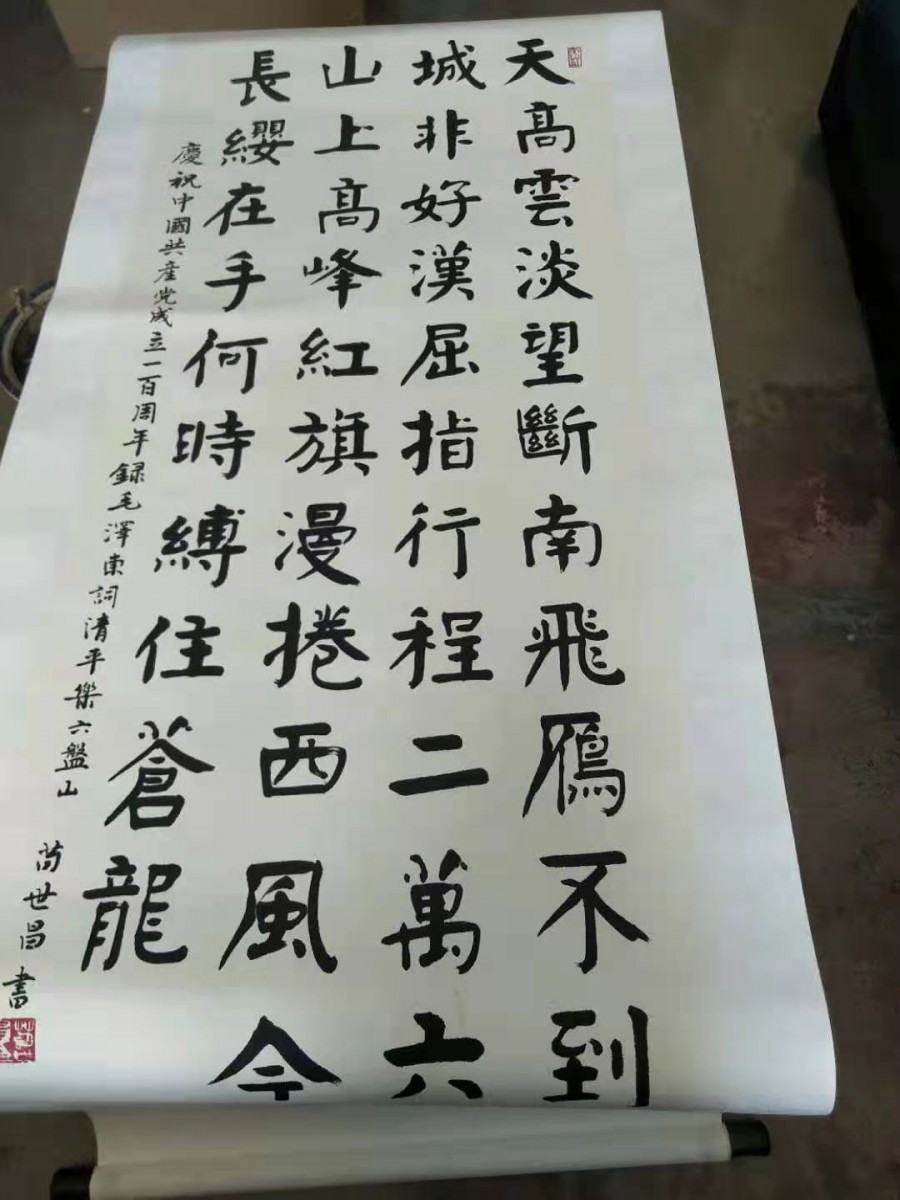 天髙雲淡望斷南飛鴈不到
城非好漢屈指行程二萬六
山上髙峰紅旗漫捲西風今
長纓在手何時縛住蒼龍
慶祝中國共產党成立一百周年録毛澤東詞清平樂六盤山
苟世昌書